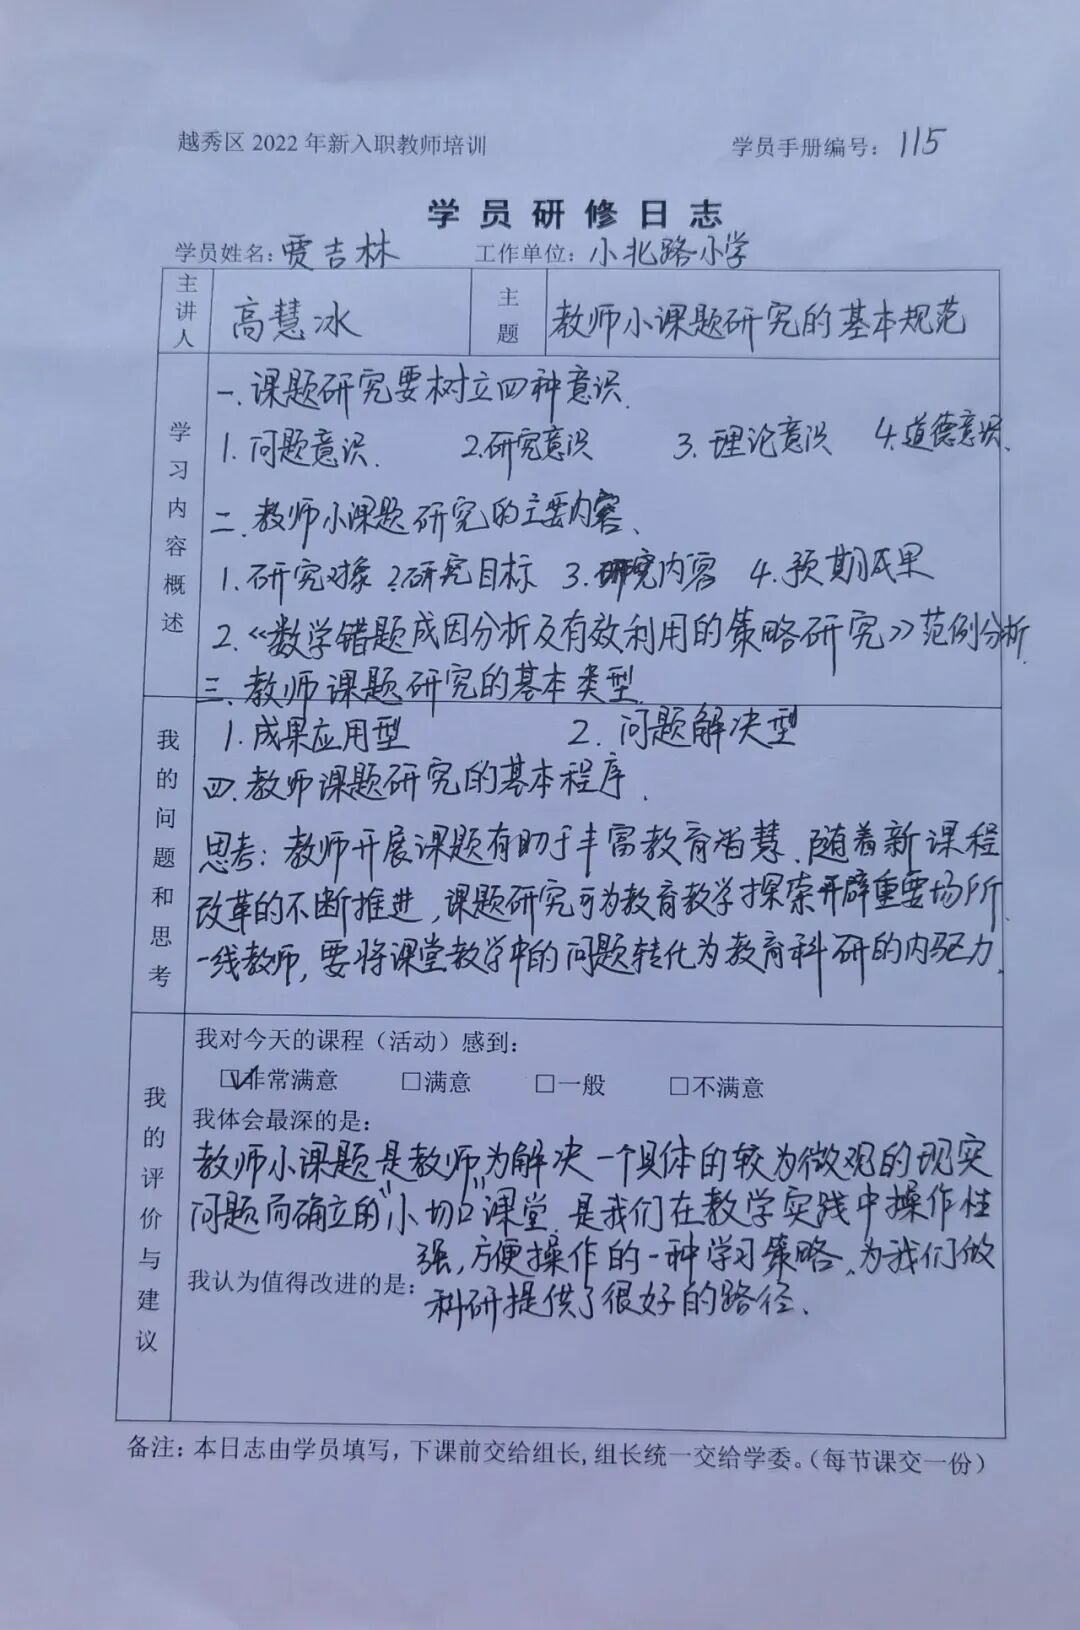 越秀区2022年新入职教师培训 学员手册编号：115
学员研修日志
学员姓名：贾吉林 工作单位：小北路小学
主讲人 高慧冰 主题 教师小课题研究的基本规范
学习内容概述
一.课题研究要树立四种意识.
1.问题意识. 2.研究意识 3.理论意识 4.道德意识.
二.教师小课题研究的主要内容.
1.研究对象 2.研究目标 3.研究内容 4.预期成果
2.《数学错题成因分析及有效利用的策略研究》范例分析.
三.教师课题研究的基本类型.
我的问题和思考
1.成果应用型 2.问题解决型
四.教师课题研究的基本程序.
思考：教师开展课题有助于丰富教育智慧.随着新课程
改革的不断推进,课题研究可为教育教学探索开辟重要场所.
一线教师,要将课堂教学中的问题转化为教育科研的内驱力.
我的评价与建议
我对今天的课程（活动）感到：
☑非常满意 □满意 □一般 □不满意
我体会最深的是：
教师小课题是教师为解决一个具体的较为微观的现实
问题而确立的"小切口"课堂.是我们在教学实践中操作性
强,方便操作的一种学习策略.为我们做
我认为值得改进的是：
科研提供了很好的路径.
备注：本日志由学员填写，下课前交给组长，组长统一交给学委。（每节课交一份）